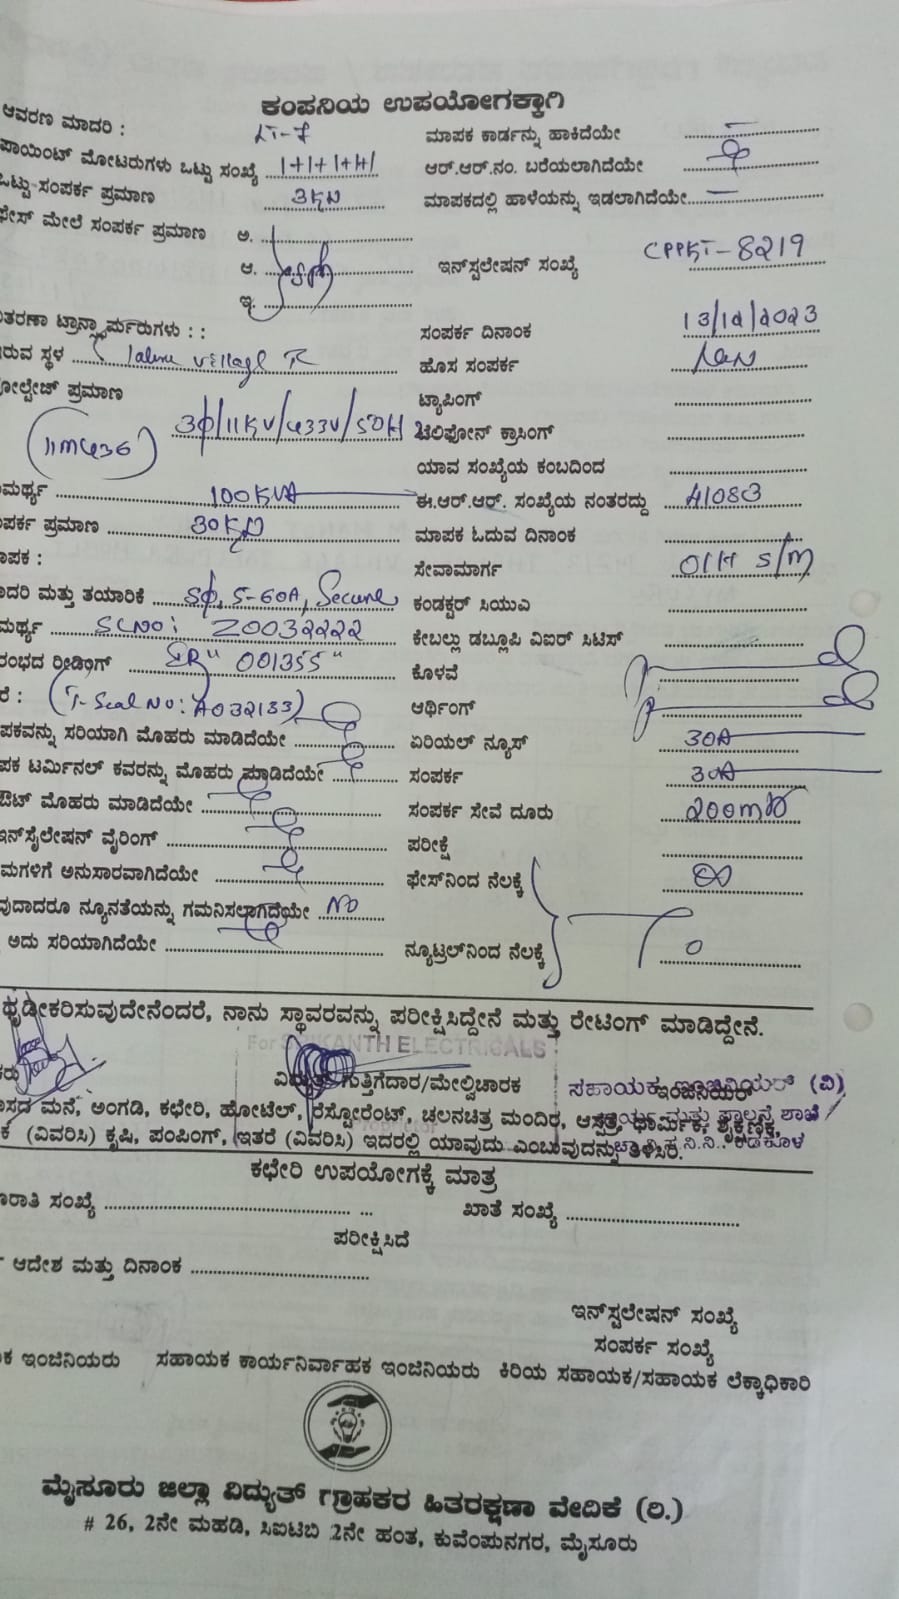 ಕಂಪನಿಯ ಉಪಯೋಗಕ್ಕಾಗಿ
ಆವರಣ ಮಾದರಿ : LT-7 ಮಾಪಕ ಕಾರ್ಡನ್ನು ಹಾಕಿದೆಯೇ
ಪಾಯಿಂಟ್ ಮೋಟರುಗಳು ಒಟ್ಟು ಸಂಖ್ಯೆ 1+1+1+1+1 ಆರ್.ಆರ್.ನಂ. ಬರೆಯಲಾಗಿದೆಯೇ
ಒಟ್ಟು ಸಂಪರ್ಕ ಪ್ರಮಾಣ 3KW ಮಾಪಕದಲ್ಲಿ ಹಾಳೆಯನ್ನು ಇಡಲಾಗಿದೆಯೇ
ಫೇಸ್ ಮೇಲೆ ಸಂಪರ್ಕ ಪ್ರಮಾಣ ಅ.
ಆ. ಇನ್‌ಸ್ಟಲೇಷನ್ ಸಂಖ್ಯೆ CPPKT-8219
ಇ.
ತರಣಾ ಟ್ರಾನ್ಸ್ಫಾರ್ಮರುಗಳು : : ಸಂಪರ್ಕ ದಿನಾಂಕ 13/12/2023
ಇರುವ ಸ್ಥಳ village ಹೊಸ ಸಂಪರ್ಕ New
ವೋಲ್ಟೇಜ್ ಪ್ರಮಾಣ ಟ್ಯಾಪಿಂಗ್
3ϕ/11KV/433V/50HZ ಟೆಲಿಫೋನ್ ಕ್ರಾಸಿಂಗ್
(11M436) ಯಾವ ಸಂಖ್ಯೆಯ ಕಂಬದಿಂದ
ಮರ್ಥ್ಯ 100KVA ಈ.ಆರ್.ಆರ್. ಸಂಖ್ಯೆಯ ನಂತರದ್ದು A1083
ಪರ್ಕ ಪ್ರಮಾಣ 30KW ಮಾಪಕ ಓದುವ ದಿನಾಂಕ
ಾಪಕ : ಸೇವಾಮಾರ್ಗ O/H S/M
ಾದರಿ ಮತ್ತು ತಯಾರಿಕೆ Sϕ, 5-60A, Secure ಕಂಡಕ್ಟರ್ ಸಿಯುವಿ
ಮರ್ಥ್ಯ SLNO: Z0032222 ಕೇಬಲ್ಲು ಡಬ್ಲೂಪಿ ವಿಐರ್ ಸಿಟಿಸ್
ರಂಭದ ರೀಡಿಂಗ್ IR" 001355" ಕೊಳವೆ
ರೆ : (T-Seal No: A032133) ಆರ್ಥಿಂಗ್
ಪಕವನ್ನು ಸರಿಯಾಗಿ ಮೊಹರು ಮಾಡಿದೆಯೇ ಏರಿಯಲ್ ನ್ಯೂಸ್ 30A
ಪಕ ಟರ್ಮಿನಲ್ ಕವರನ್ನು ಮೊಹರು ಮಾಡಿದೆಯೇ ಸಂಪರ್ಕ 30A
ಔಟ್ ಮೊಹರು ಮಾಡಿದೆಯೇ ಸಂಪರ್ಕ ಸೇವೆ ದೂರು 200m
ಇನ್‌ಸೈಲೇಷನ್ ವೈರಿಂಗ್ ಪರೀಕ್ಷೆ
ಮಗಳಿಗೆ ಅನುಸಾರವಾಗಿದೆಯೇ ಫೇಸ್‌ನಿಂದ ನೆಲಕ್ಕೆ ∞
ವುದಾದರೂ ನ್ಯೂನತೆಯನ್ನು ಗಮನಿಸಲಾಗಿದೆಯೇ NO
ಅದು ಸರಿಯಾಗಿದೆಯೇ ನ್ಯೂಟ್ರಲ್‌ನಿಂದ ನೆಲಕ್ಕೆ 0
ಧೃಡೀಕರಿಸುವುದೇನೆಂದರೆ, ನಾನು ಸ್ಥಾವರವನ್ನು ಪರೀಕ್ಷಿಸಿದ್ದೇನೆ ಮತ್ತು ರೇಟಿಂಗ್ ಮಾಡಿದ್ದೇನೆ.
For SRIKANTH ELECTRICALS
ವಿದ್ಯುತ್ ಗುತ್ತಿಗೆದಾರ/ಮೇಲ್ವಿಚಾರಕ ಇಂಜಿನಿಯರ್
ಸಹಾಯಕ ಇಂಜಿನಿಯರ್ (ವಿ)
ಾಸದ ಮನೆ, ಅಂಗಡಿ, ಕಛೇರಿ, ಹೋಟೆಲ್, ರೆಸ್ಟೋರೆಂಟ್, ಚಲನಚಿತ್ರ ಮಂದಿರ, ಆಸ್ಪತ್ರೆ ಧಾರ್ಮಿಕ, ಶೈಕ್ಷಣಿಕ,
ಕ (ವಿವರಿಸಿ) ಕೃಷಿ, ಪಂಪಿಂಗ್, ಇತರೆ (ವಿವರಿಸಿ) ಇದರಲ್ಲಿ ಯಾವುದು ಎಂಬುವುದನ್ನು ತಿಳಿಸಿರಿ.
ಕಛೇರಿ ಉಪಯೋಗಕ್ಕೆ ಮಾತ್ರ
ರಾತಿ ಸಂಖ್ಯೆ ಖಾತೆ ಸಂಖ್ಯೆ
ಪರೀಕ್ಷಿಸಿದೆ
ಆದೇಶ ಮತ್ತು ದಿನಾಂಕ
ಇನ್‌ಸ್ಟಲೇಷನ್ ಸಂಖ್ಯೆ
ಸಂಪರ್ಕ ಸಂಖ್ಯೆ
ಕ ಇಂಜಿನಿಯರು ಸಹಾಯಕ ಕಾರ್ಯನಿರ್ವಾಹಕ ಇಂಜಿನಿಯರು ಕಿರಿಯ ಸಹಾಯಕ/ಸಹಾಯಕ ಲೆಕ್ಕಾಧಿಕಾರಿ
ಮೈಸೂರು ಜಿಲ್ಲಾ ವಿದ್ಯುತ್ ಗ್ರಾಹಕರ ಹಿತರಕ್ಷಣಾ ವೇದಿಕೆ (ರಿ.)
# 26, 2ನೇ ಮಹಡಿ, ಸಿಐಟಿಬಿ 2ನೇ ಹಂತ, ಕುವೆಂಪುನಗರ, ಮೈಸೂರು